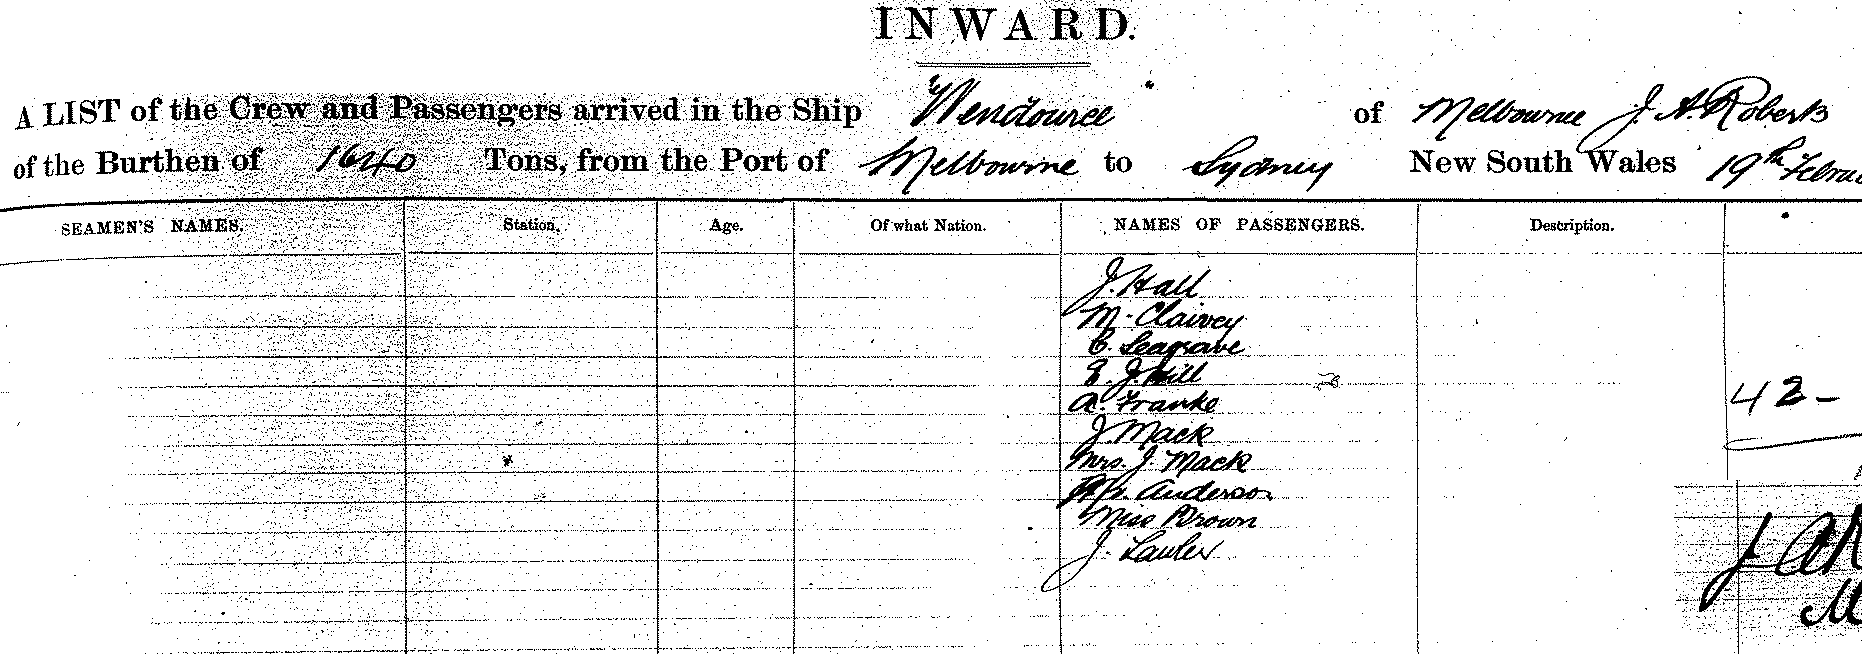 INWARD.
A LIST of the Crew and Passengers arrived in the Ship "Wendouree" of Melbourne J. A. Roberts
of the Burthen of 1640 Tons, from the Port of Melbourne to Sydney New South Wales 19th Februa
SEAMEN'S NAMES. Station. Age. Of what Nation. NAMES OF PASSENGERS. Description.
J. Hall
M. Clairvey
C. Seagrave
E. J. Hill
A. Franke
42-
J Mack
Mrs. J. Mack
Anderson
Miss Brown
J. Lawler